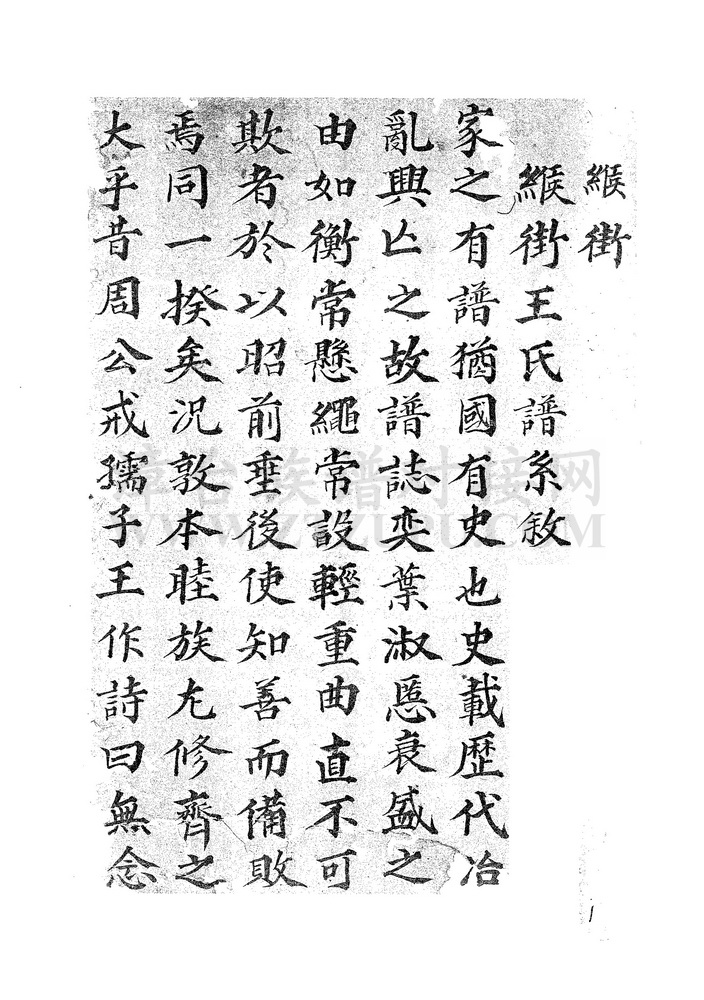 緱街
緱街王氏譜系敘
家之有譜猶國有史也史載歷代冶
亂興亾之故譜誌奕葉淑慝衰盛之
由如衡常懸繩常設輕重曲直不可
欺者於以昭前垂後使知善而備敗
焉同一揆矣況敦本睦族尢修齊之
大乎昔周公戒孺子王作詩曰無念
族譜对接网
WWW.ZTZUPU.COM
1